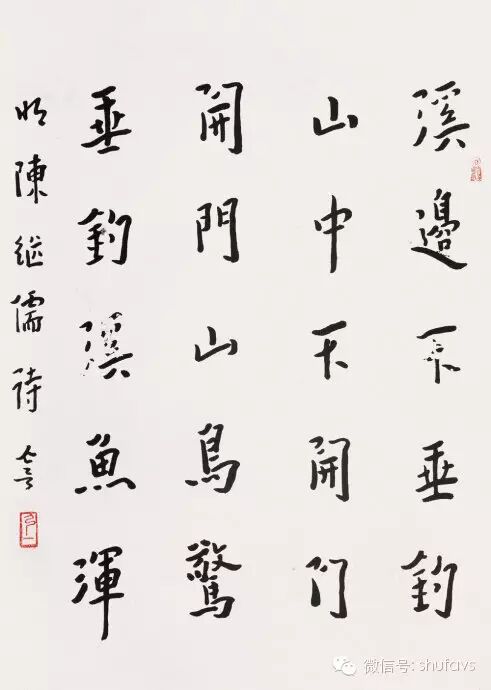 溪邊不垂釣
山中不開門
開門山鳥驚
垂釣溪魚渾
明陳继儒詩
微信号: shufavs